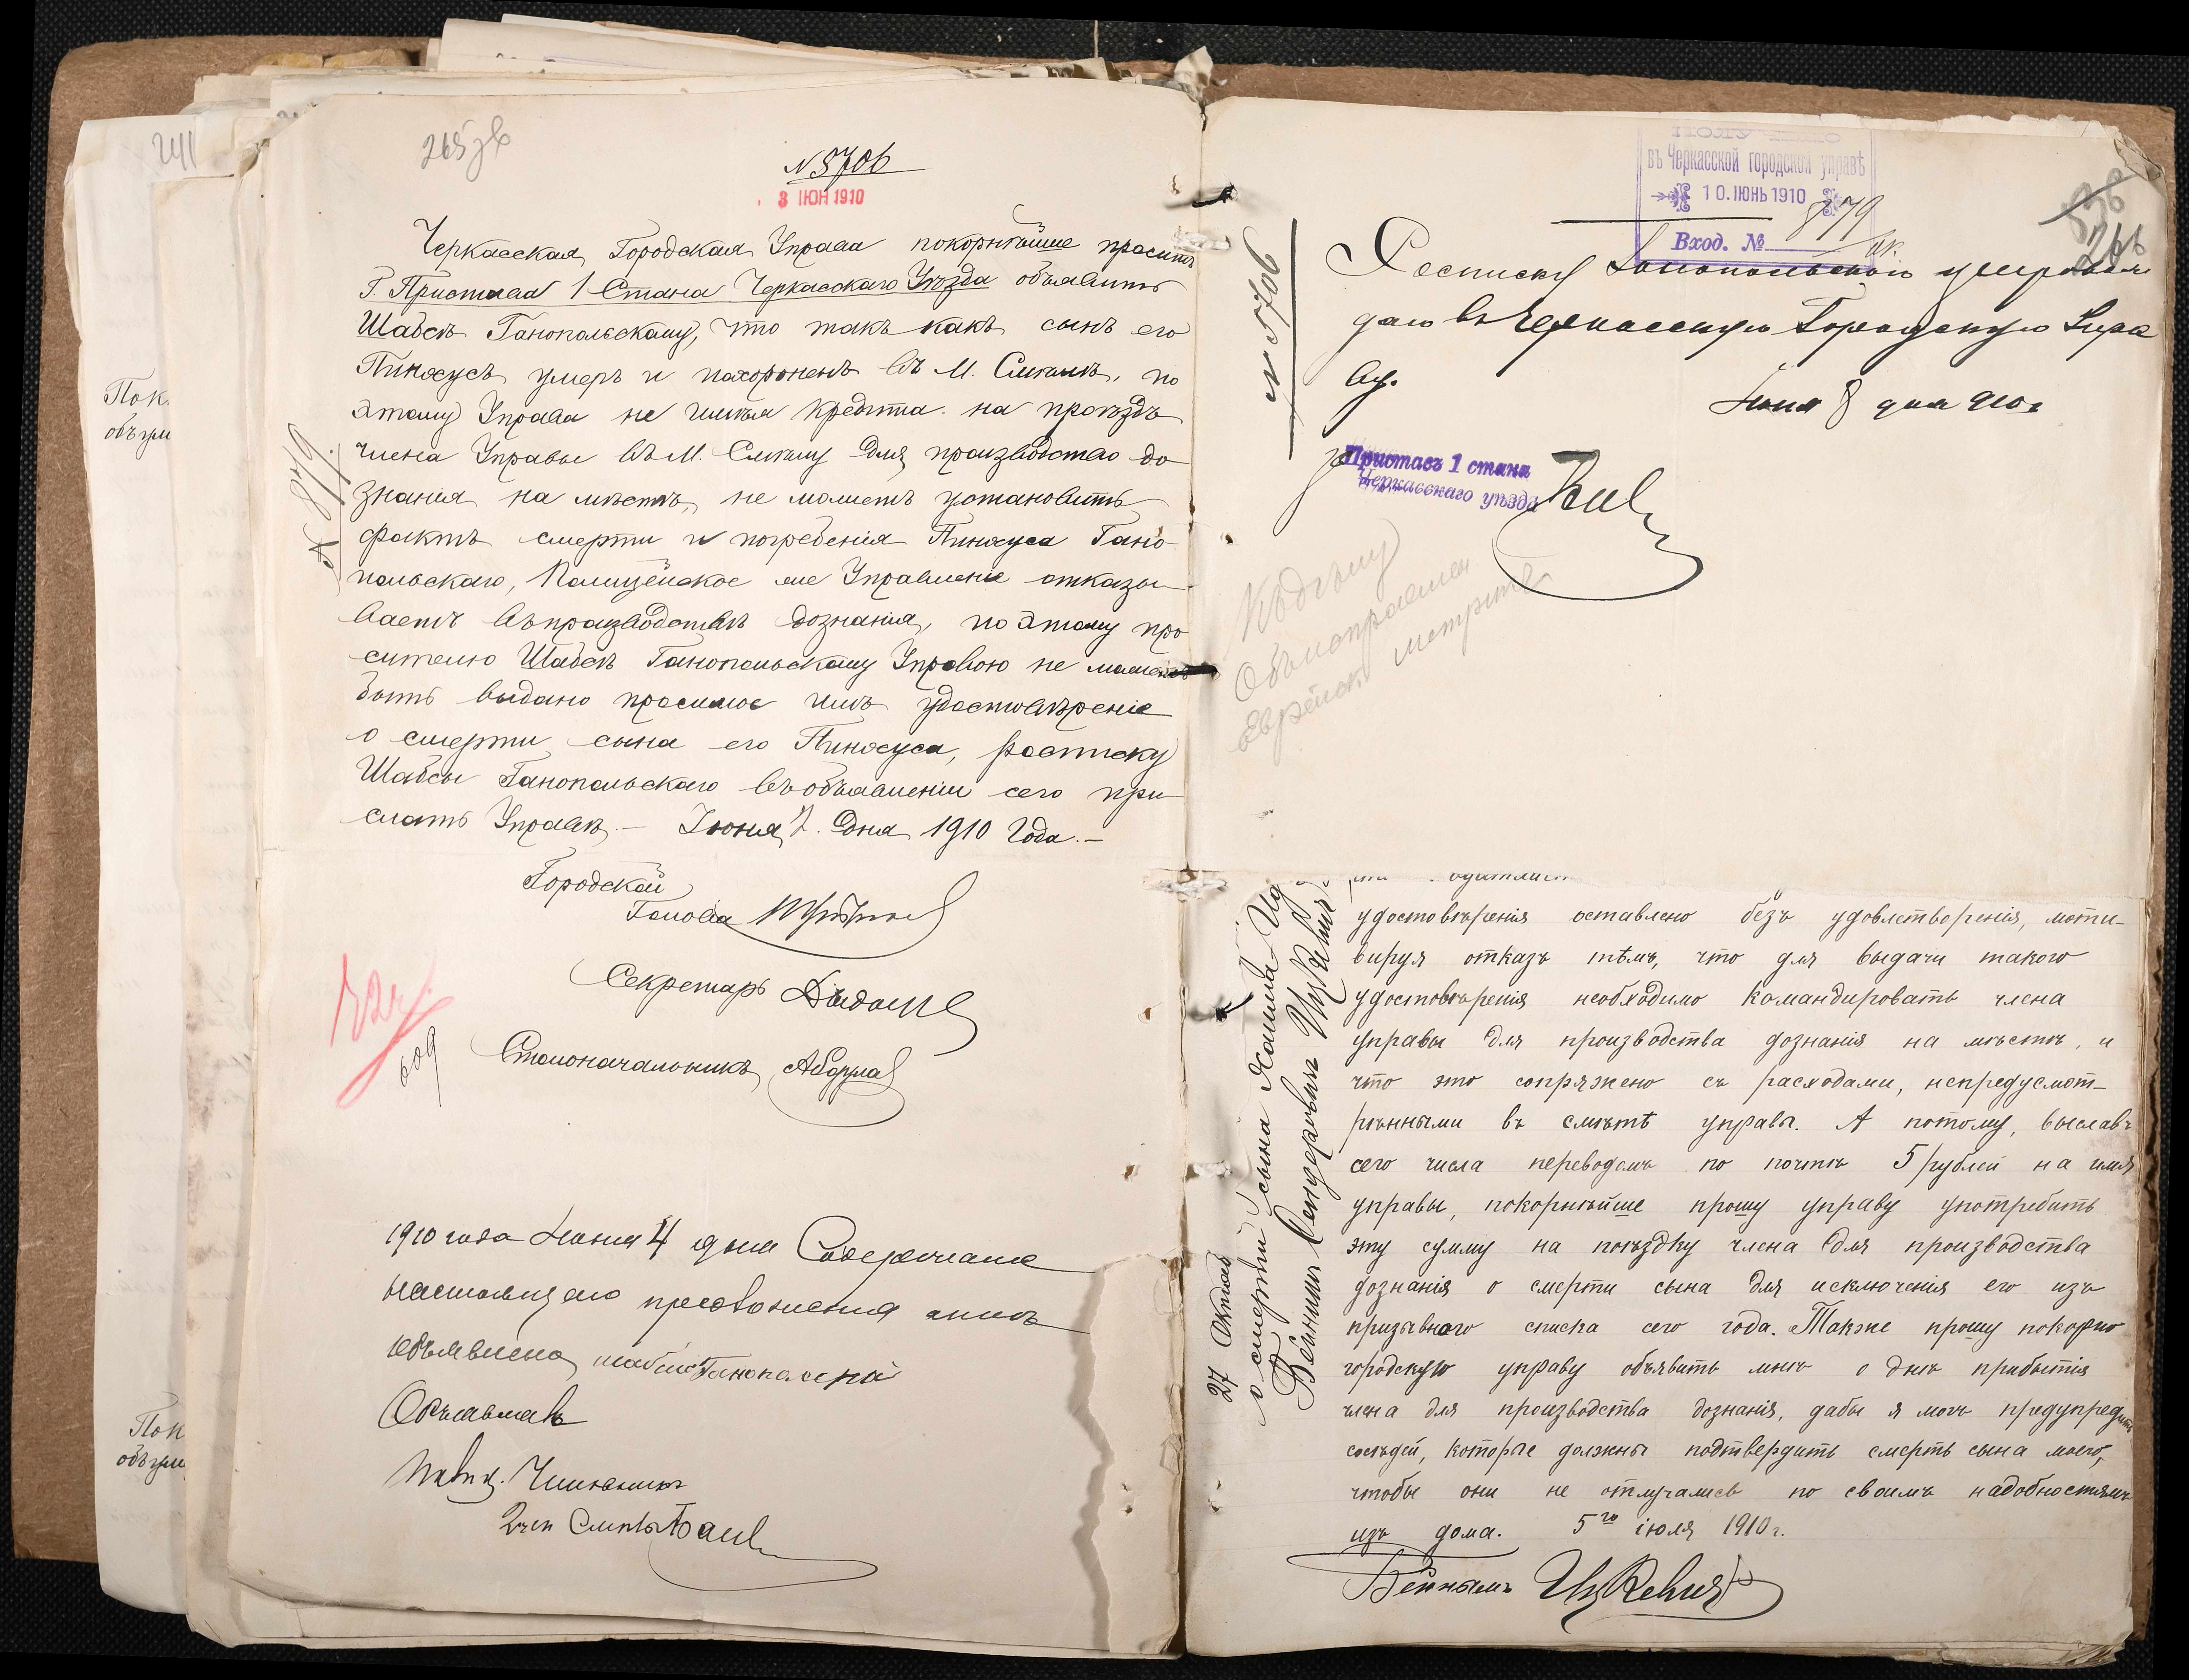 241
Пок.
объум
Пок
объум
265 зв
N 5706
3 ІЮН 1910
Черкасская Городская Управа покорнѣйше проситъ
Г. Пристава 1 Стана Черкасскаго Уѣзда объявить
Шабсѣ Ганопольскому, что такъ какъ сынъ его
Пинхусъ умеръ и похороненъ въ М. Смѣлѣ, по
этому Управа не имѣя кредита на проѣздъ
члена Управы въ М. Смѣлу для производства до
знанія на мѣстѣ, не можетъ установить
фактъ смерти и погребенія Пинхуса Гано-
польскаго, Полицейское же Управленіе отказы-
ваетъ въ производствѣ дознанія, по этому про
сителю Шабсѣ Ганопольскому Управою не можетъ
быть выдано просимое имъ удостовѣреніе
о смерти сына его Пинхуса, росписку
Шабсы Ганопольскаго въ объявленіи сего при
слать Управѣ. — Іюня 2. дня 1910 Года. —
N 879.
Городской
Голова
Секретарь
Столоначальникъ
609
1910 года Июня 4 дня Содержание
настоящего предложения мнѣ
объявлено
Объявилъ
въ Черкасской городской управѣ
10. ІЮНЬ 1910
Вход. № 879
266
N 5706
Росписку Ганопольского препровож
даю въ Черкасскую Городскую Упра
ву.
Июня 8 дня 910 г
Приставъ 1 стана
Черкасскаго уѣзда
Къ дѣлу
27 Октяб
о смерти сына Хаима-Иц
Бейнишъ Лендеровичъ Ицкевичъ
удостовѣренія оставлено безъ удовлетворенія, моти-
вируя отказъ тѣмъ, что для выдачи такого
удостовѣренія необходимо командировать члена
управы для производства дознанія на мѣстѣ, и
что это сопряжено съ расходами, непредусмот-
рѣнными въ смѣтѣ управы. А потому, выславъ
сего числа переводомъ по почтѣ 5 рублей на имя
управы, покорнѣйше прошу управу употребить
эту сумму на поѣздку члена для производства
дознанія о смерти сына для исключенія его изъ
призывного списка сего года. Также прошу покорно
городскую управу объявить мнѣ о днѣ прибытія
члена для производства дознанія, дабы я могъ предупредить
сосѣдей, которые должны подтвердить смерть сына моего,
чтобы они не отлучались по своимъ надобностямъ
изъ дома. 5го іюля 1910 г.
Ицкевичъ